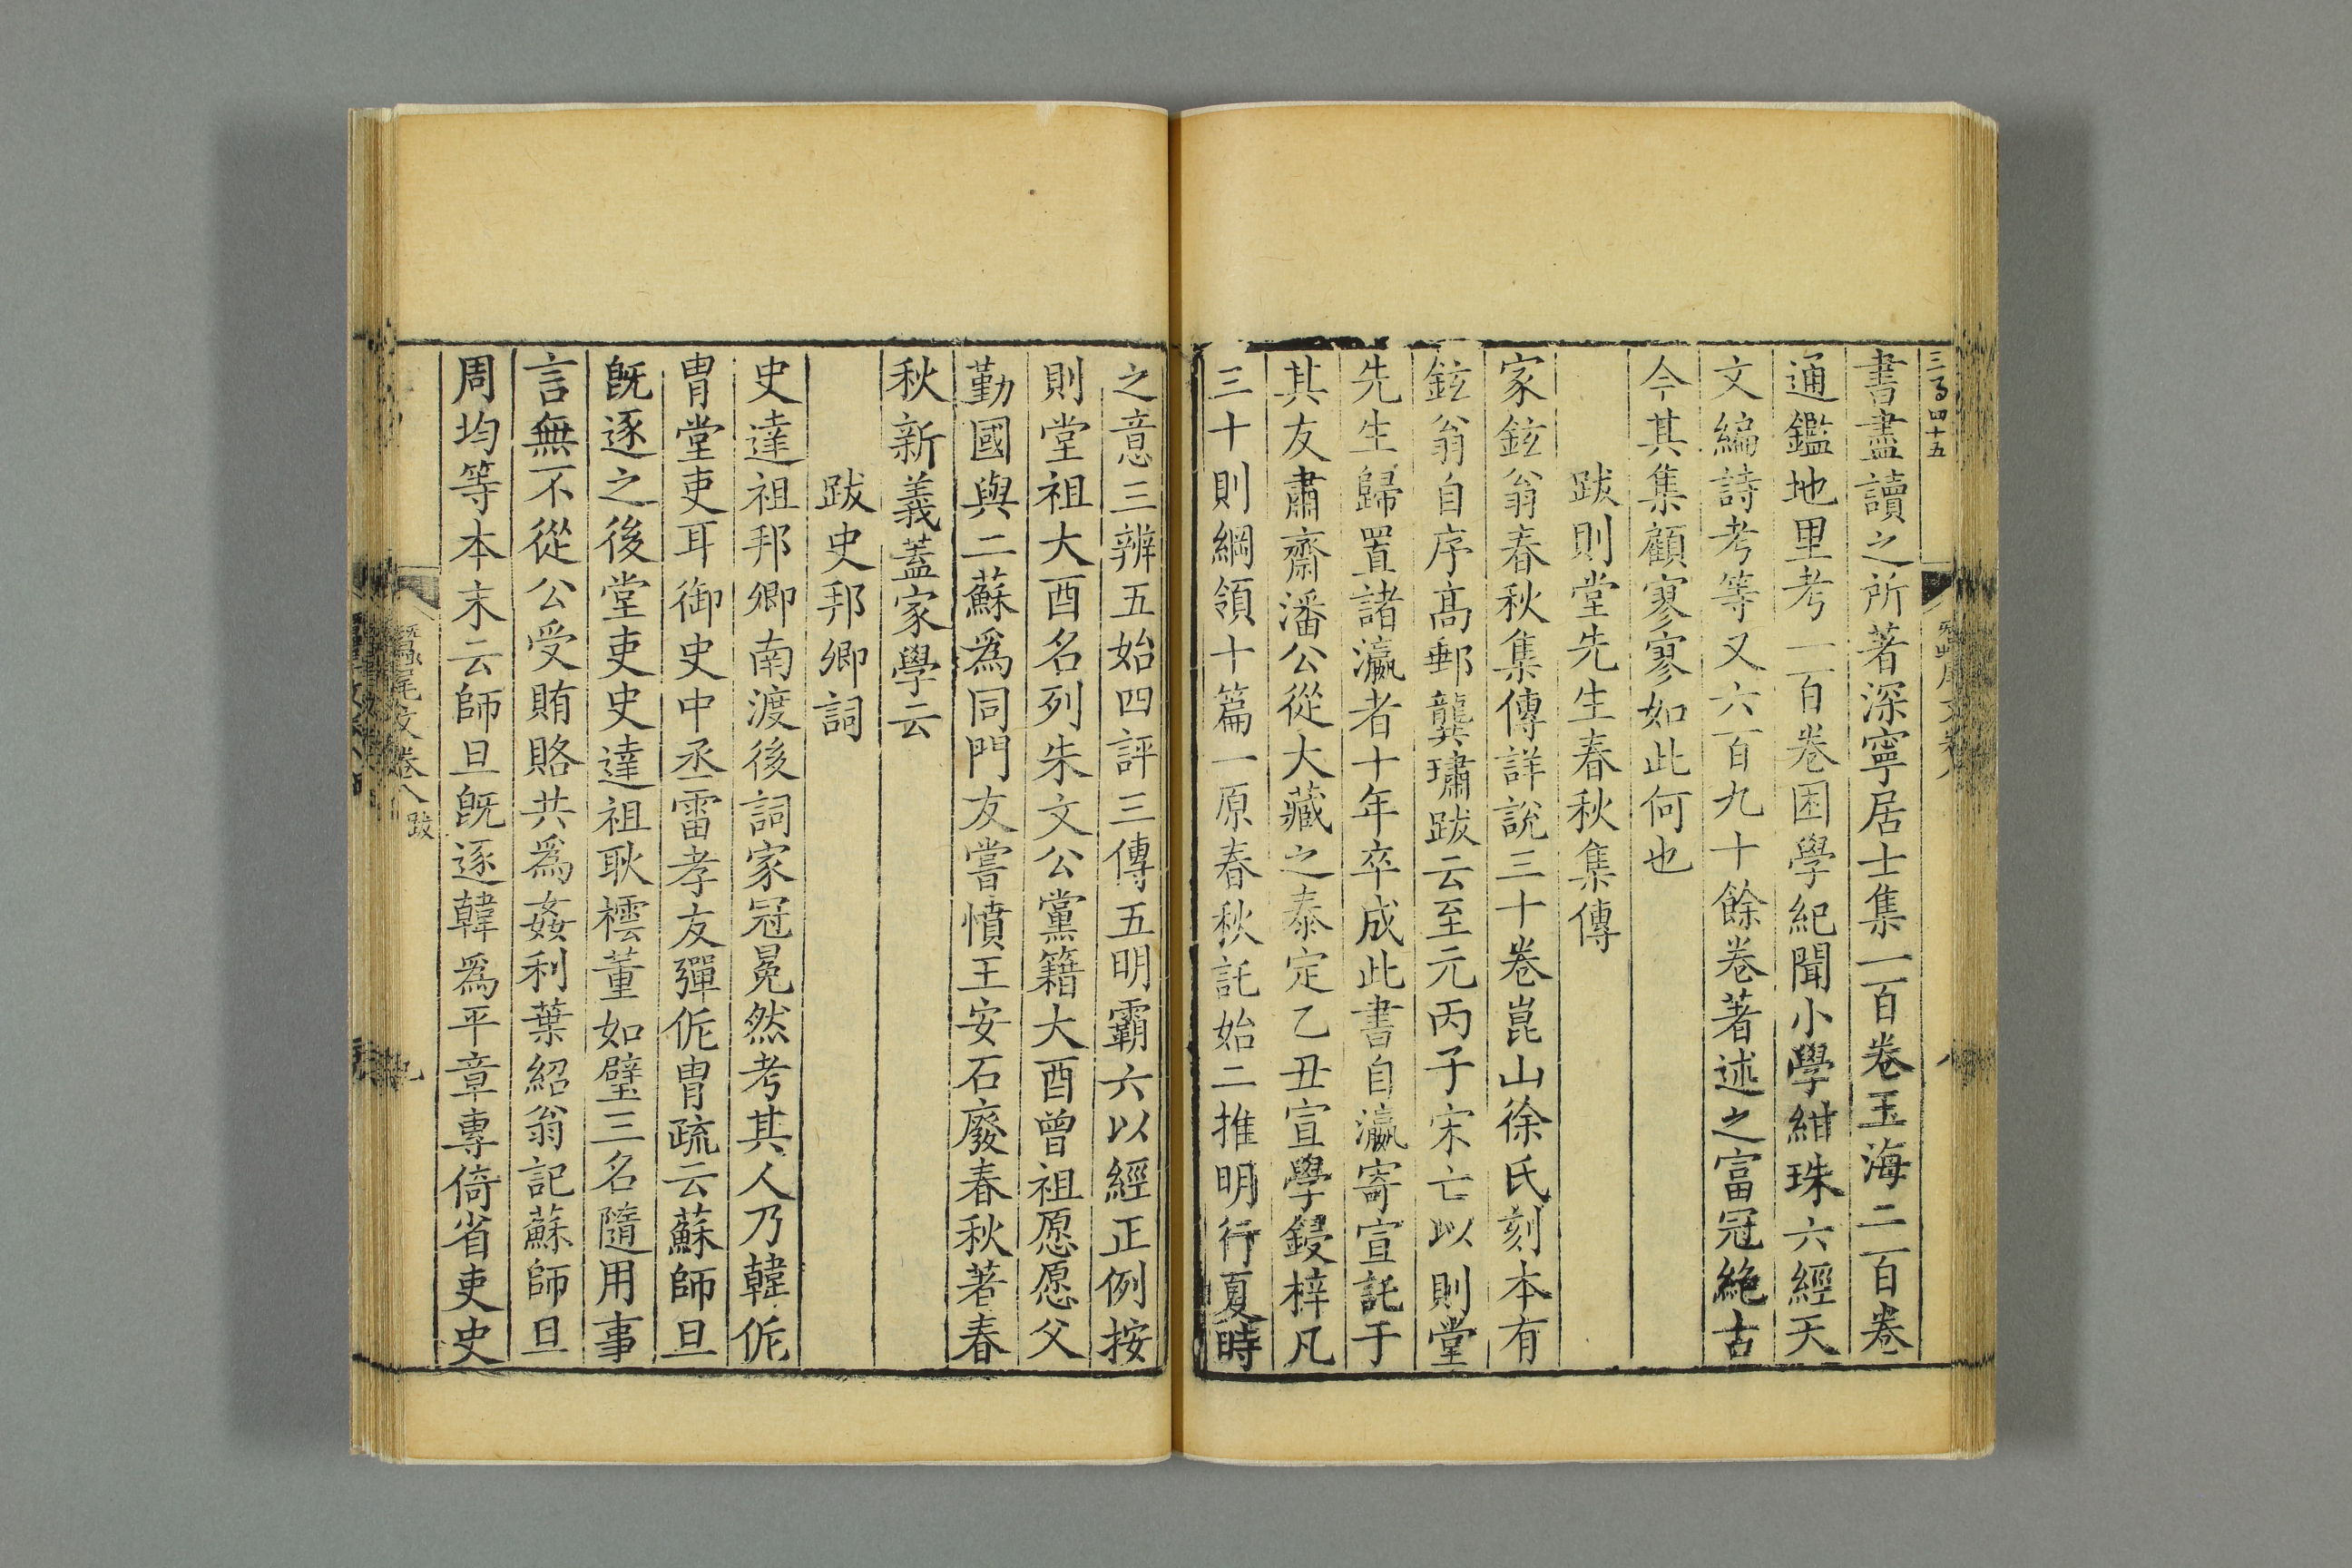 書盡讀之所著深寧居士集一百卷玉海二百卷
通鑑地里考一百卷困學紀聞小學紺珠六經天
文編詩考等又六百九十餘卷著述之富冠絶古
今其集顧寥寥如此何也
跋則堂先生春秋集傳
家鉉翁春秋集傳詳說三十卷崑山徐氏刻本有
鉉翁自序高郵龔璛跋云至元丙子宋亡以則堂
先生歸置諸瀛者十年卒成此書自瀛寄宣託于
其友肅齋潘公從大藏之泰定乙丑宣學鋟梓凡
三十則綱領十篇一原春秋託始二推明行夏時
之意三辨五始四評三傳五明霸六以經正例按
則堂祖大酉名列朱文公黨籍大酉曾祖愿愿父
勤國與二蘇爲同門友嘗憤王安石廢春秋著春
秋新義蓋家學云
跋史邦卿詞
史達祖邦卿南渡後詞家冠冕然考其人乃韓侂
胄堂吏耳御史中丞雷孝友彈侂胄疏云蘇師旦
旣逐之後堂吏史達祖耿檉董如璧三名隨用事
言無不從公受賄賂共爲姦利葉紹翁記蘇師旦
周均等本末云師旦旣逐韓爲平章專倚省吏史
蠶尾文卷八 跋
九